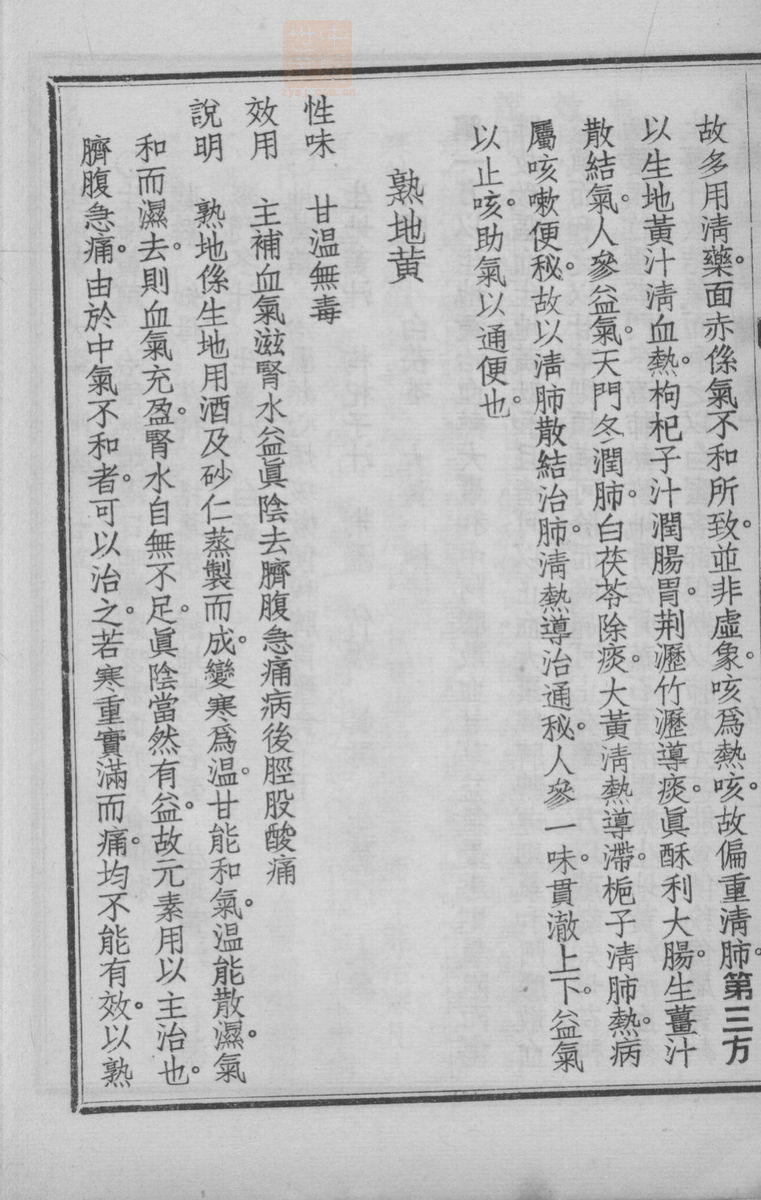 故多用淸藥。面赤係氣不和所致。並非虛象。咳爲熱咳。故偏重淸肺。第三方
以生地黃汁淸血熱。枸杞子汁潤腸胃。荆瀝竹瀝導痰。眞酥利大腸。生薑汁
散結氣。人參益氣。天門冬潤肺。白茯苓除痰。大黃淸熱導滯。梔子淸肺熱。病
屬咳嗽便秘。故以淸肺散結治肺。淸熱導治通秘。人參一味。貫澈上下。益氣
以止咳。助氣以通便也。
熟地黃
性味　甘溫無毒
效用　主補血氣滋腎水益眞陰去臍腹急痛病後脛股酸痛
說明　熟地係生地用酒及砂仁蒸製而成。變寒爲溫。甘能和氣。溫能散濕。氣
和而濕去。則血氣充盈。腎水自無不足。眞陰當然有益。故元素用以主治也。
臍腹急痛。由於中氣不和者。可以治之。若寒重實滿而痛。均不能有效。以熟